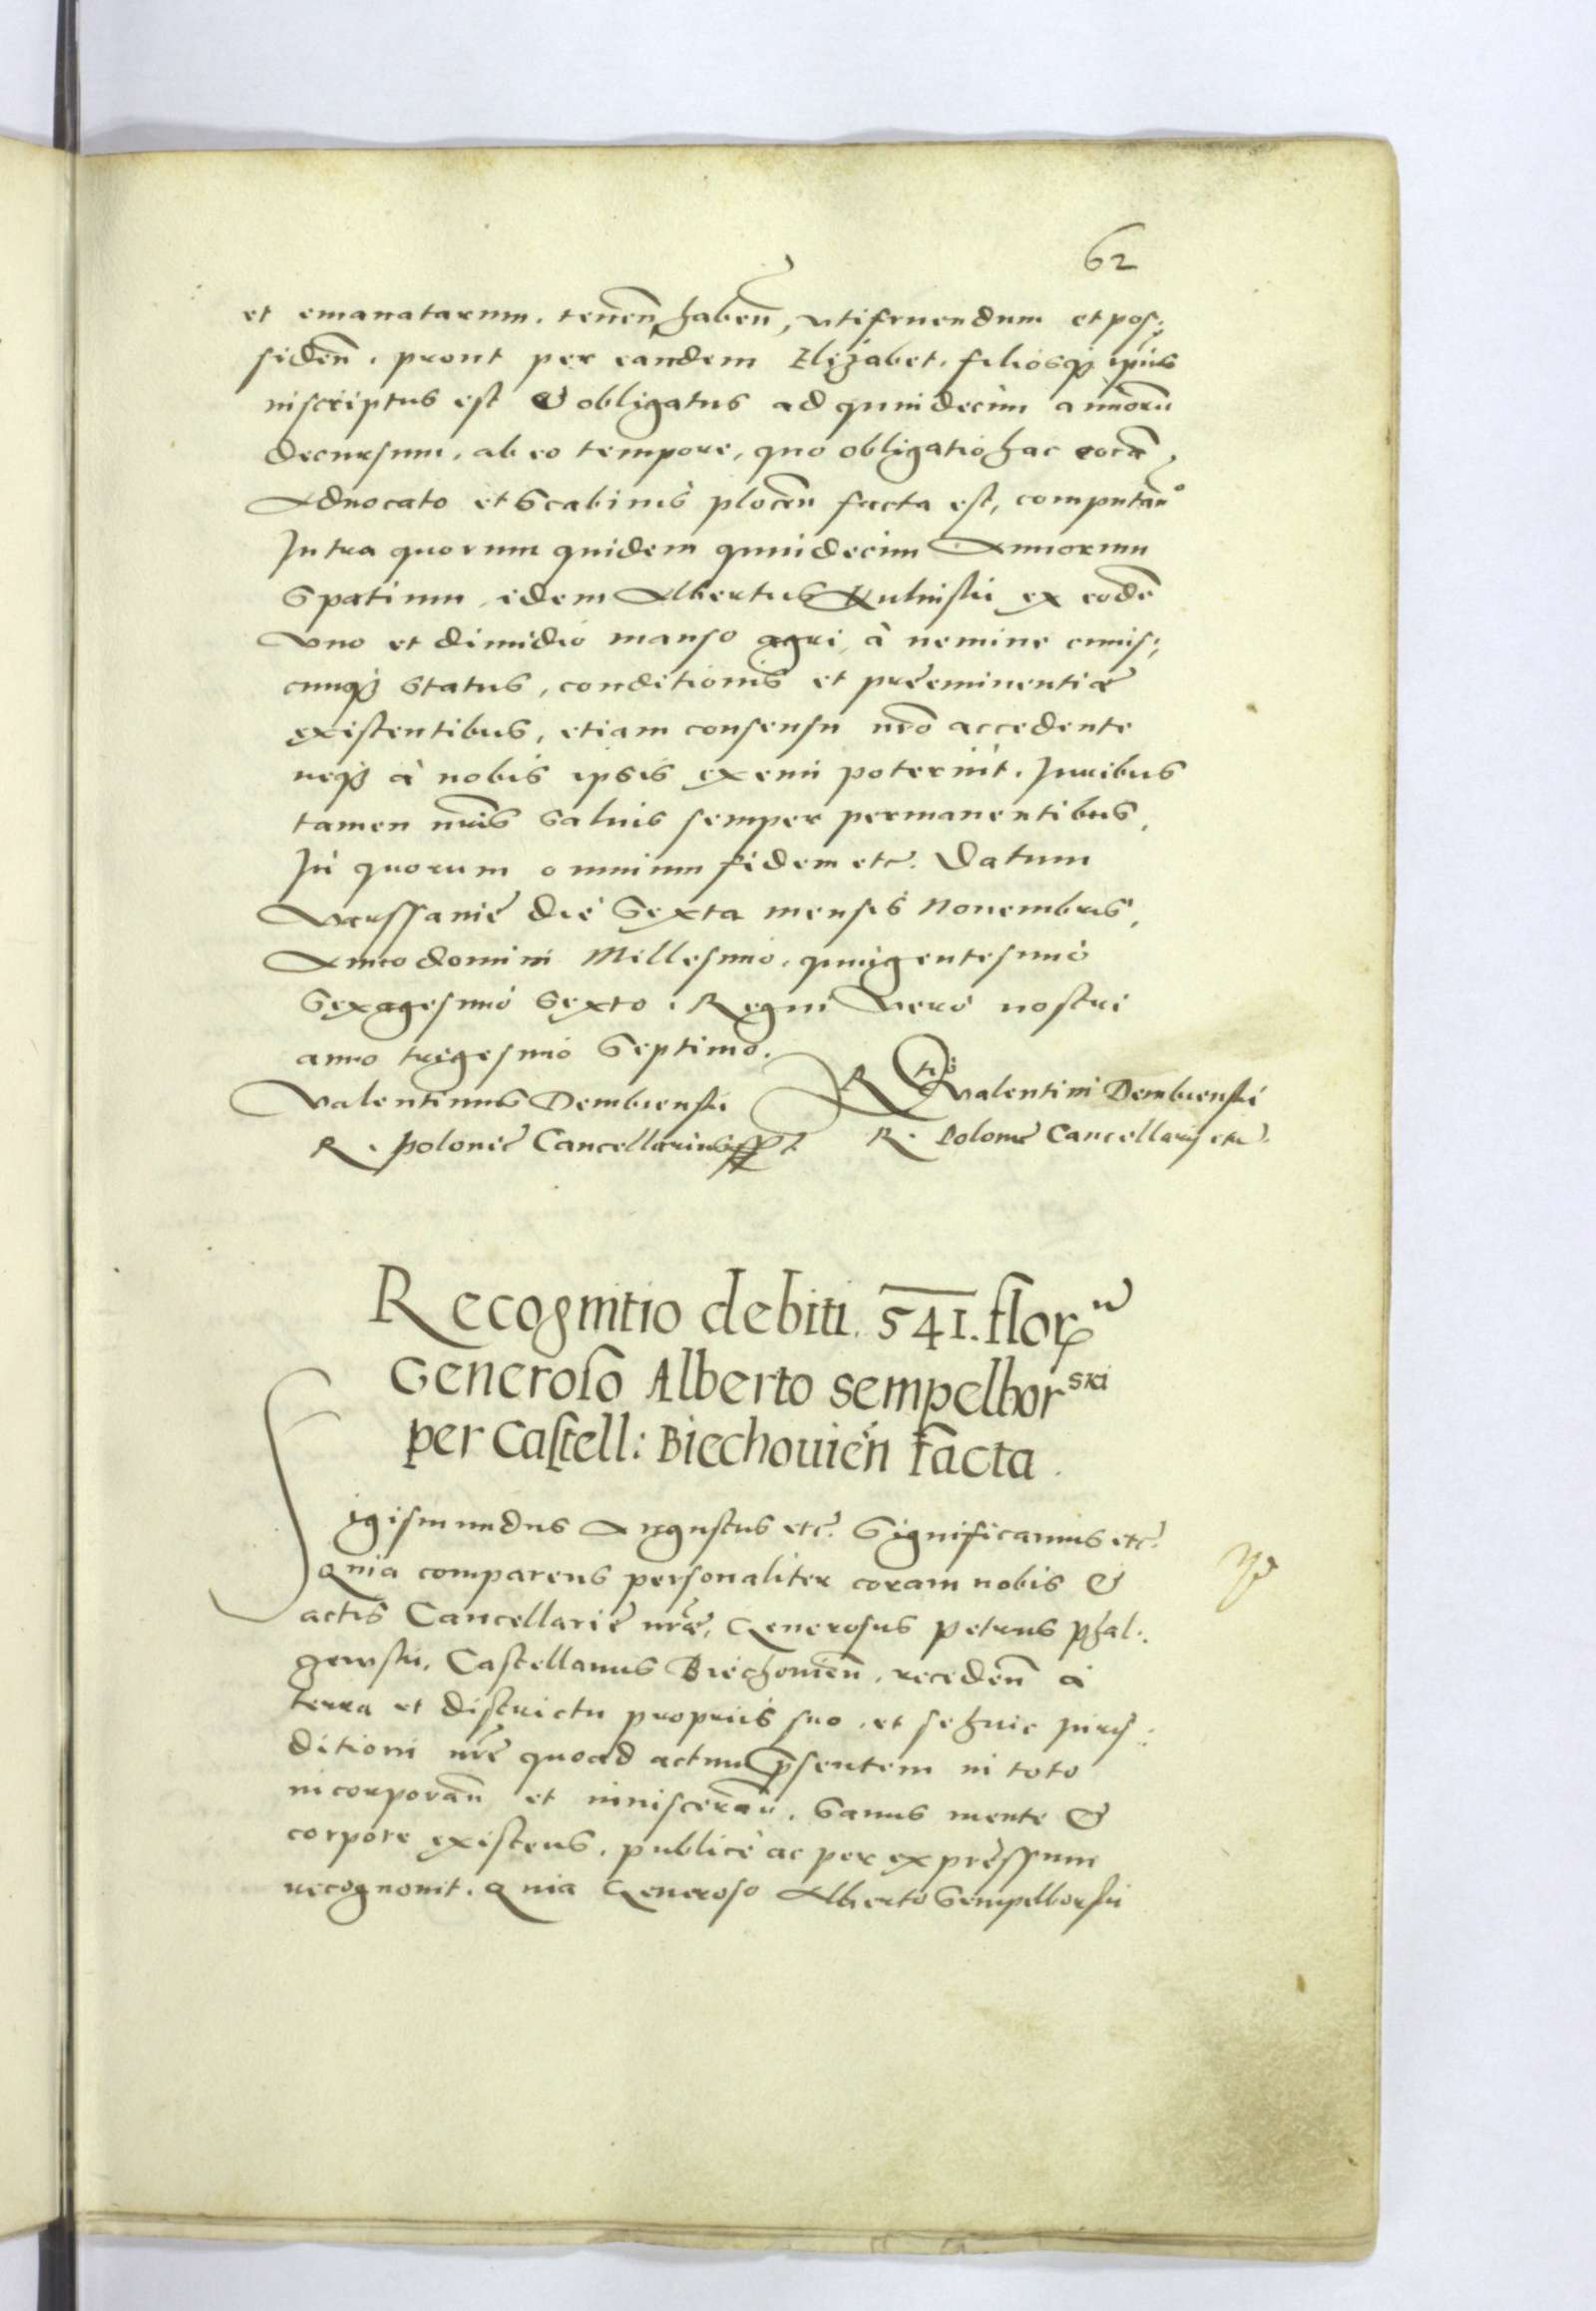 62
et emanatarum. tenen̄ haben̄, vtifruendum et pos:
siden̄. prout per eandem Elizabet. filiosq3 ipius
inscriptus est & obligatus ad quindecim annorū
decursum. ab eo tempore, quo obligatio hac corā
Aduocato et Scabinis plocen̄ facta est, computan̄°
Intra quorum quidem quindecim Annorum
Spatium idem Albertus ex eodē
vno et dimidio manso agri, à nemine cuius:
cunq3 status, conditionis et preeminentiæ
existentibus, etiam consensu nr̄o accedente
neq3 à nobis ipsis eximi poterint. Iuribus
tamen nr̄is saluis semper permanentibus.
In quorum omnium fidem etc. Datum
Varssauiæ die Sexta mensis Nouembris,
Anno domini Millesimo, quingentesimo
Sexagesimo Sexto. Regni Vero nostri
anno trigesimo Septimo.
Valentinus Dembienski
R. Poloniæ Cancellarius sspt.
Rtio Valentini Dembienski
R. Poloniæ Cancellarij etc.
Recognitio debiti. 541. flor
Generoso Alberto Sempelborski
per Castell: Biechouień facta.
Sigismundus Augustus etc. Significamus etc.
Quia comparens personaliter coram nobis &
actis Cancellariæ nr̄æ, Generosus Petrus
Castellanus Biechouien̄. receden̄ à
terra et districtu proprijs suo. et se huic Iuris:
ditioni nr̄æ quoad actum p̄sentem in toto
incorporan̄ et inuisceran̄. Sanus mente &
corpore existens. publicè ac per expressum
recognouit. Quia Generoso Alberto Sempelborski